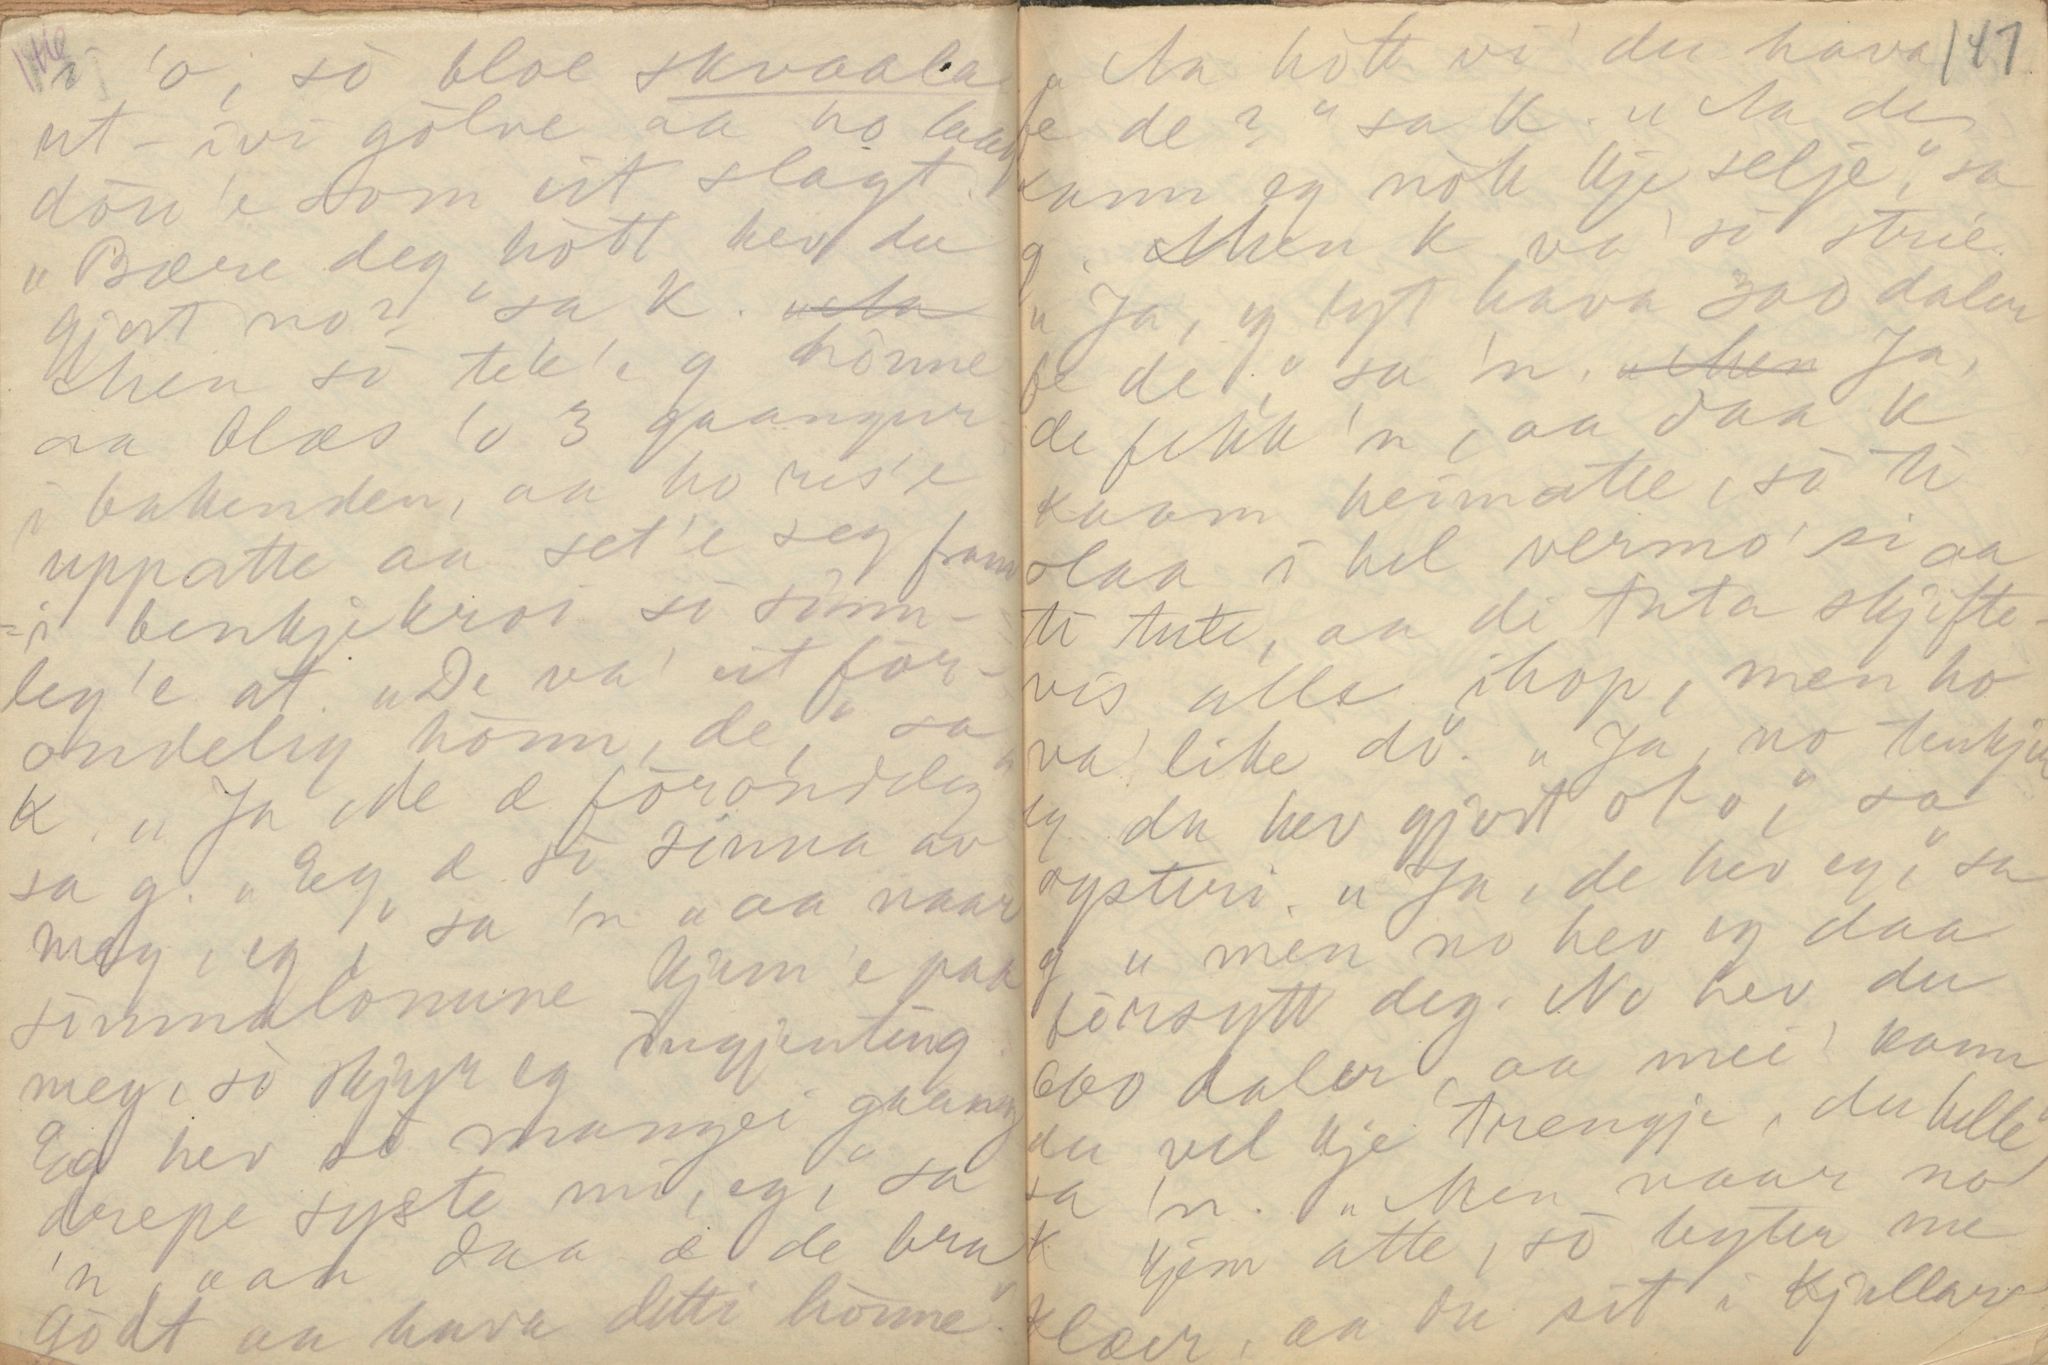 146
i 'o, sò bloe skvaala
ut-ivi gòlve aa ho laag
dòu'e som eit slagt.
„Bære deg hòtt hev du
gjort no?" sa K.
Men sò tek'e g hònne
aa blæs 'o 3 gaangur
i bakenden, aa ho ris'e
uppatte aa set'e seg fram
-i benkjekroi sò sinn-
leg'e at. „De va' eit fòr-
ondeleg hònn, de," sa
K. „Ja, de æ fòrondeleg"
sa g. „Eg æ sò sinna av
meg, eg," sa 'n „aa naar
sinnalonune kjem'e paa
meg, sò skjyr eg ingjenting.
Eg hev sò mangei gaang
drepe syste mi, eg," sa
'n, „aa daa æ de bra
gòdt aa hava detti hònne".
147
„Aa hòtt vi' du hava
fe de?" sa K. „Aa de
kann eg nòk kje selje," sa
g. Men K va' sò strie.
„Ja, eg lyt hava 300 daler
fe de," sa 'n. Ja,
de fekk 'n, aa daa K
kaam heimatte, sò ti
slaa i hel vermo' si aa
ti tute, aa di tuta skjifte-
vis alle ihop, men ho
va' like dò. „Ja, no tenkjer
eg du hev gjort o' o," sa
systeri. „Ja, de hev eg," sa
g „men no hev eg daa
fòrsytt deg. No hev du
600 daler, aa mei' kann
du vel kje trengje, du helle"
sa 'n. „Men naar no
K kjem atte, sò byter me
klær, aa du sit i kjellare